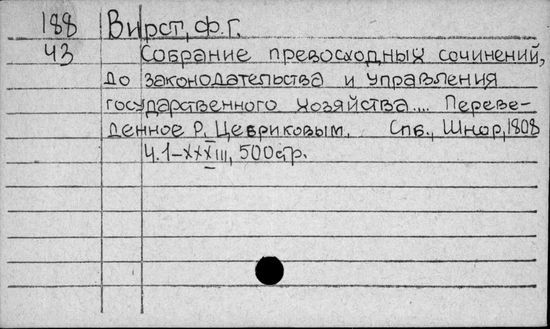 188 Вирст, Ф.Г.
43 Собрание превосходных сочинений,
до законодательства и управления
государственного хозяйства.... Переве-
денное Р. Цебриковым. Спб., Шнор, 1808
Ч.1-XXXIII, 500стр.